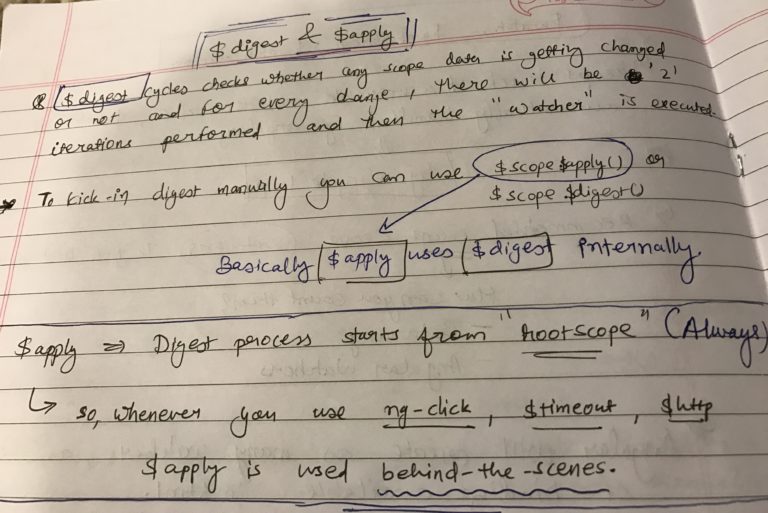 $digest & $apply
$digest cycles checks whether any scope data is getting changed
or not and for every change, there will be '2'
iterations performed and then the "watcher" is executed.
To kick-in digest manually you can use $scope $apply() or
$scope $digest()
Basically $apply uses $digest internally.
$apply ⇒ Digest process starts from "rootscope" (Always)
↳ so, whenever you use ng-click, $timeout, $http
$apply is used behind-the-scenes.